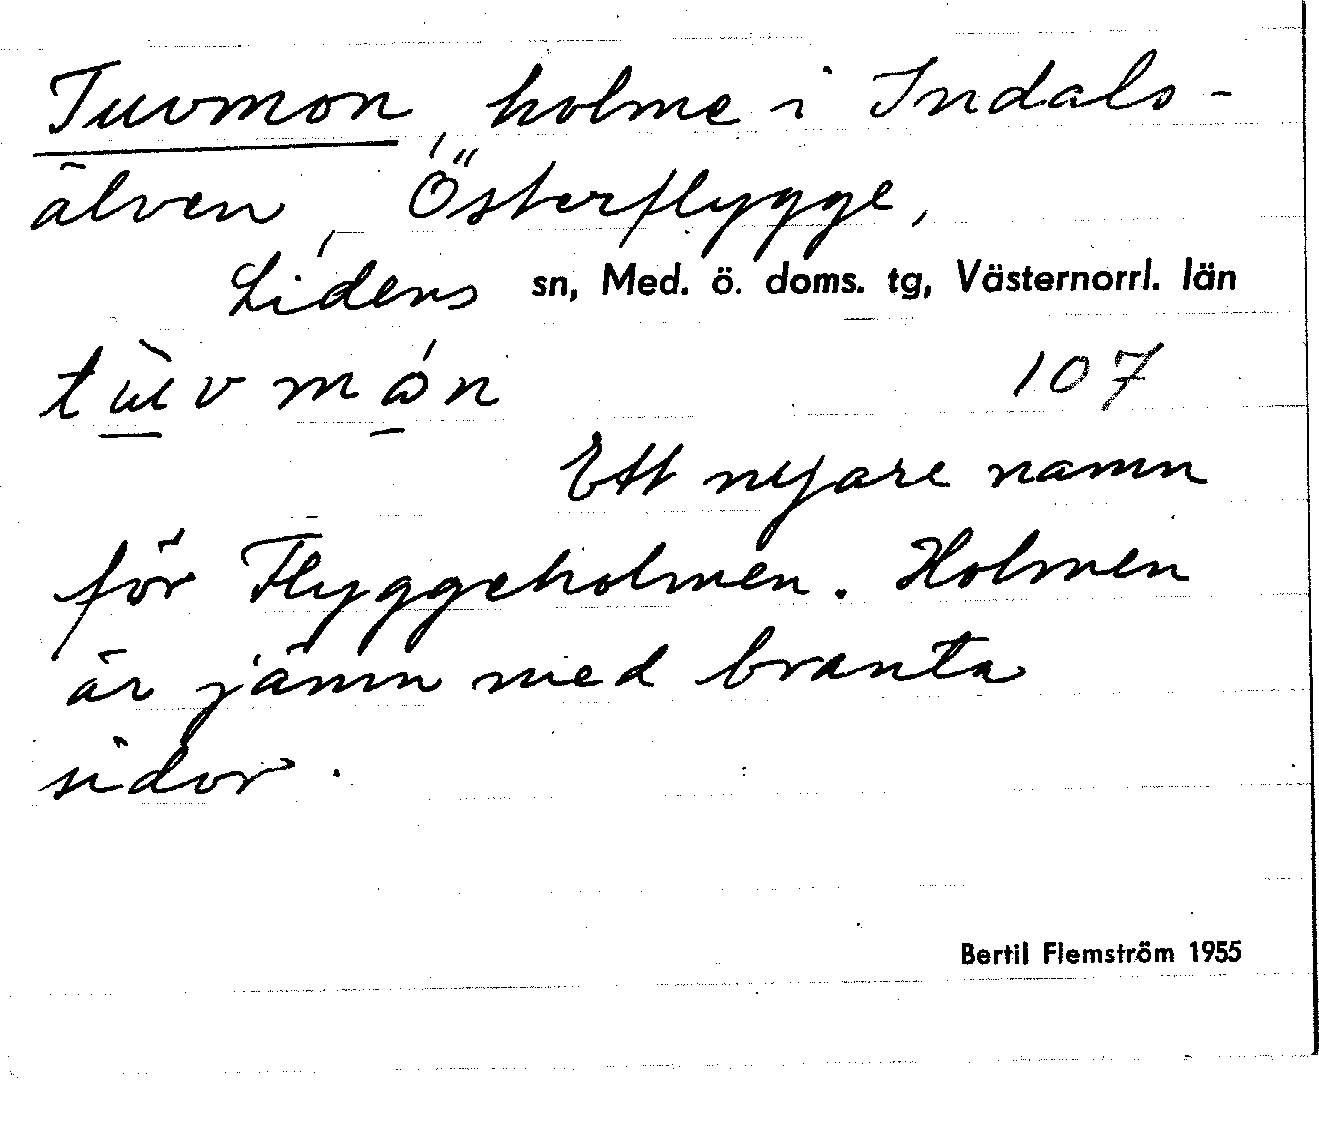 Tuvmon, holme i Indals-
älven, Österflygge,
Lidens sn, Med. ö. doms. tg, Västernorrl. län
tùvmón 107
Ett nyare namn
för Flyggeholmen. Holmen
är jämn med branta
sidor.
Bertil Flemström 1955